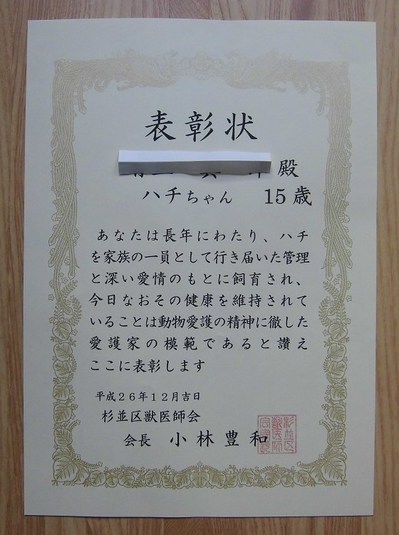 表彰状
殿
ハチちゃん 15歳
あなたは長年にわたり、ハチ
を家族の一員として行き届いた管理
と深い愛情のもとに飼育され、
今日なおその健康を維持されて
いることは動物愛護の精神に徹した
愛護家の模範であると讃え
ここに表彰します
平成26年12月吉日
杉並区獣医師会
会長 小林豊和